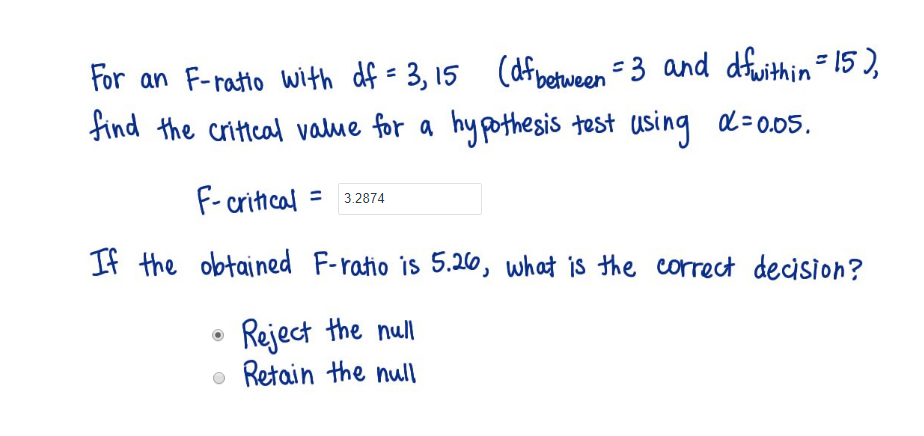 For an F-ratio with df = 3, 15 (df between = 3 and df within = 15),
find the critical value for a hypothesis test using α = 0.05.
F-critical = 3.2874
If the obtained F-ratio is 5.26, what is the correct decision?
Reject the null
Retain the null